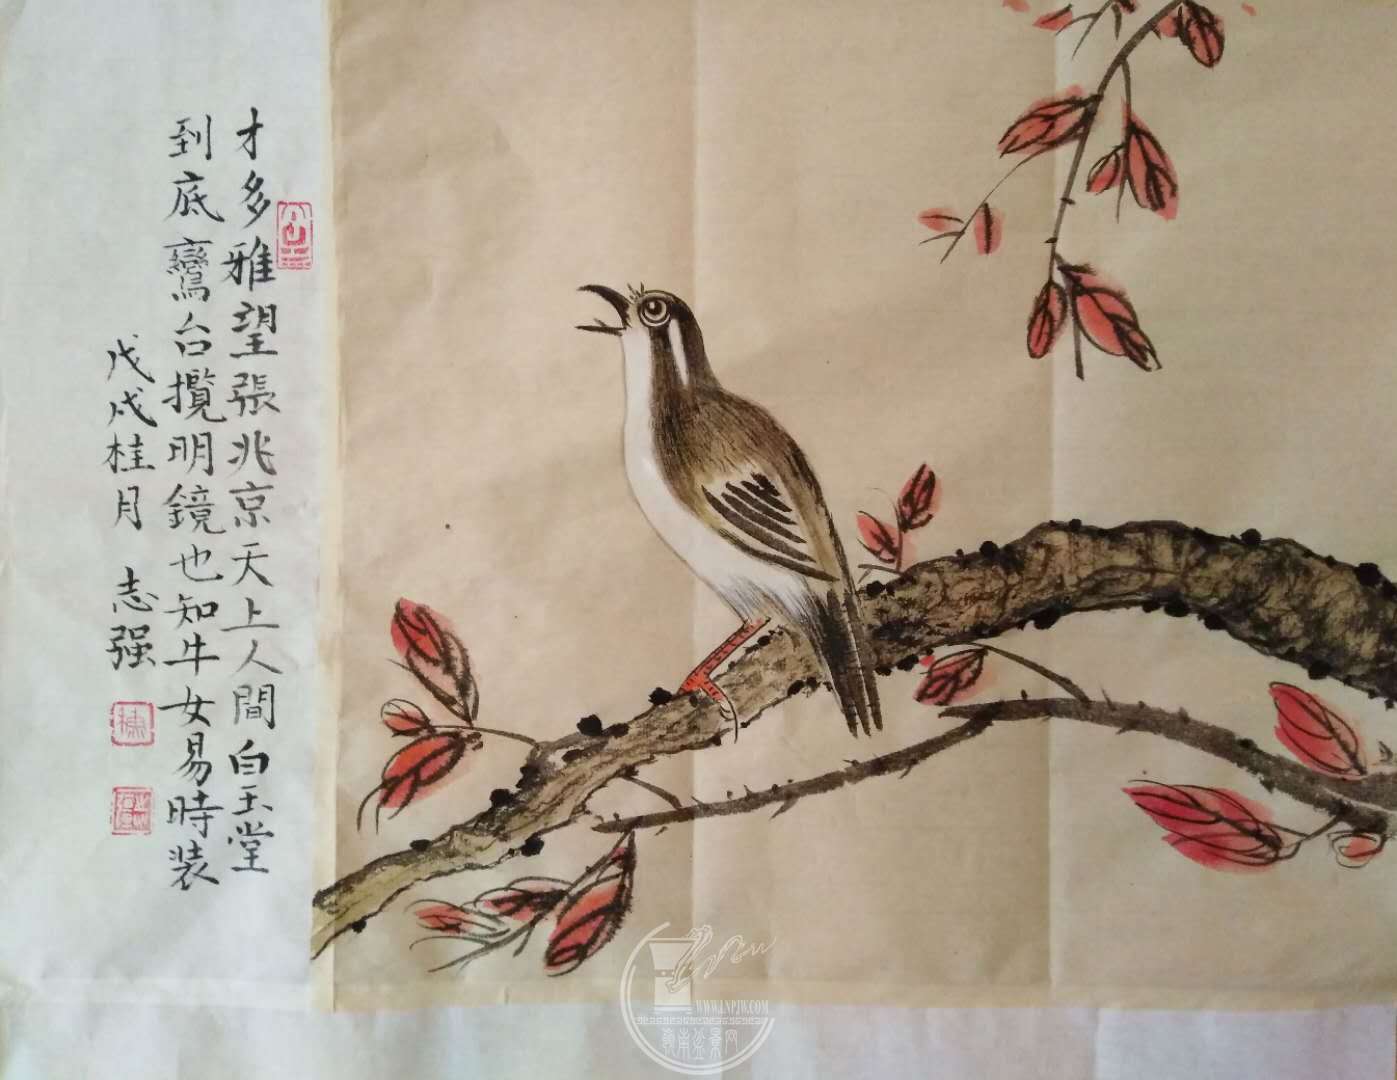 才多雅望張兆京天上人間白玉堂
到底鸞台攬明鏡也知牛女易時装
戊戌桂月 志强
WWW.LNPJW.COM
嶺南盆景网